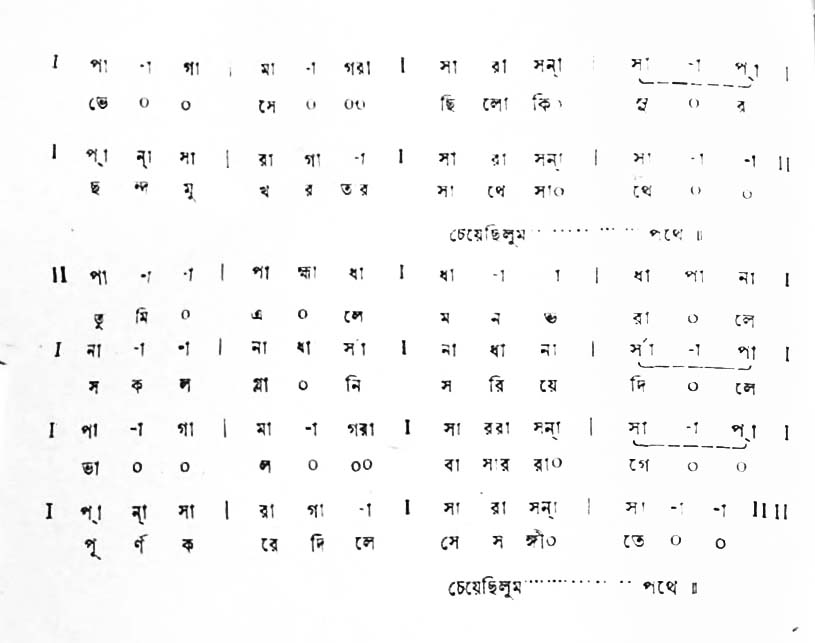 I পা -া গা | মা -া গরা I সা রা সন্‌া | সা -া প্‌া I
ভে ০ ০ সে ০ ০০ ছি লো কি০ সু ০ র
I প্‌া ন্‌া সা | রা গা -া I সা রা সন্‌া | সা -া -া II
ছ ন্দ মু খ র তর সা থে সা০ থে ০ ০
চেয়েছিলুম·· ····· ··· ·· পথে ॥
II পা -া -া | পা হ্মা ধা I ধা -া া | ধা পা না I
তু মি ০ এ ০ লে ম ন ভ রা ০ লে
I না -া -া | না ধা র্সা I না ধা না | র্সা -া পা I
স ক ল গ্লা ০ নি স রি য়ে দি ০ লে
I পা -া গা | মা -া গরা I সা ররা সন্‌া | সা -া প্‌া I
ভা ০ ০ ল ০ ০০ বা সার রা০ গে ০ ০
I প্‌া ন্‌া সা | রা গা -া I সা রা সন্‌া | সা -া -া II II
পূ র্ণ ক রে দি লে সে স ঙ্গী০ তে ০ ০
চেয়েছিলুম··············· ·· পথে ॥